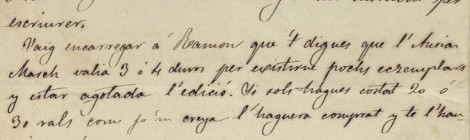 escriurer.
Vaig encarregar á Ramon que 't digues que l'Ausias
March valia 3 ó 4 duros per existirne pochs eczemplars
y estar agotada l'edició. Si sols hagues costat 20 ó
30 rals com jo'm creya l'haguera comprat y te l'hau